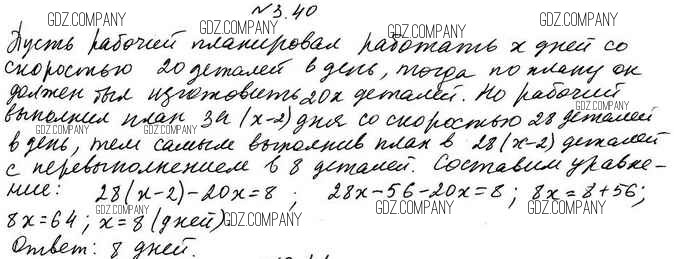 №3.40
Пусть рабочий планировал работать x дней со
скоростью 20 деталей в день, тогда по плану он
должен был изготовить 20x деталей. Но рабочий
выполнил план за (x-2) дня со скоростью 28 деталей
в день, тем самым выполнив план в 28(x-2) деталей
с перевыполнением в 8 деталей. Составим уравне-
ние: 28(x-2)-20x=8 ; 28x-56-20x=8; 8x=8+56;
8x=64; x=8 (дней)
Ответ: 8 дней.
GDZ.COMPANY
GDZ.COMPANY
GDZ.COMPANY
GDZ.COMPANY
GDZ.COMPANY
GDZ.COMPANY
GDZ.COMPANY
GDZ.COMPANY
GDZ.COMPANY
GDZ.COMPANY
GDZ.COMPANY
GDZ.COMPANY